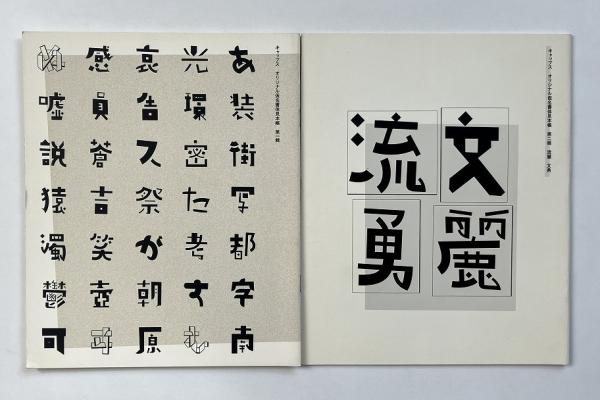 キャップス・オリジナル仮名書体見本帳 第一輯
あ装街写都字南
光環密た考す
哀告ス祭が朝原
感員蒼吉笑壺
嘘説猿濁鬱可
キャップス・オリジナル仮名書体見本帳・第二輯
文麗
流勇